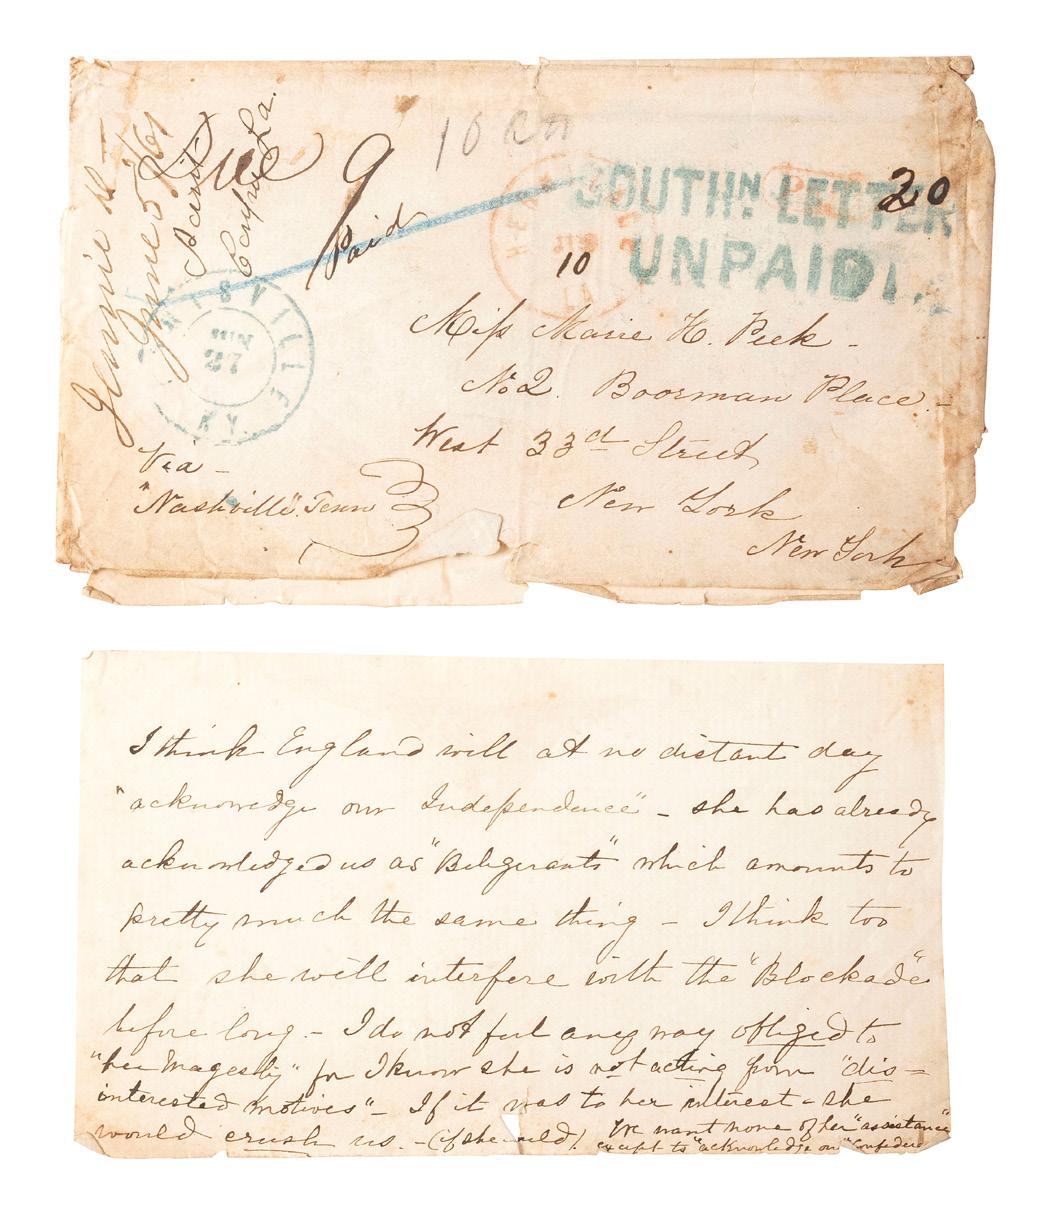 Jennie R-
June 5th/61
Recd
Campo La.
Due 9
Paid
10
SOUTHN. LETTER
UNPAID.
20
10
LA
SVILLE KY.
JUN
22
Miss Marie H. Peek -
No 2. Boorman Place -
West 33d Street
New York
New York
Via -
"Nashville". Tenn
I think England will at no distant day
"acknowledge our Independence" - she has already
acknowledged us as "Beligerants" which amounts to
pretty much the same thing - I think too
that she will interfere with the "Blockade"
before long. - I do not feel any way obliged to
"her Magesty" for I know she is not acting from "dis=
interested motives" - If it was to her interest - she
would crush us. - (if she could)
We want none of her "assistance"
except to "acknowledge our "Confedera